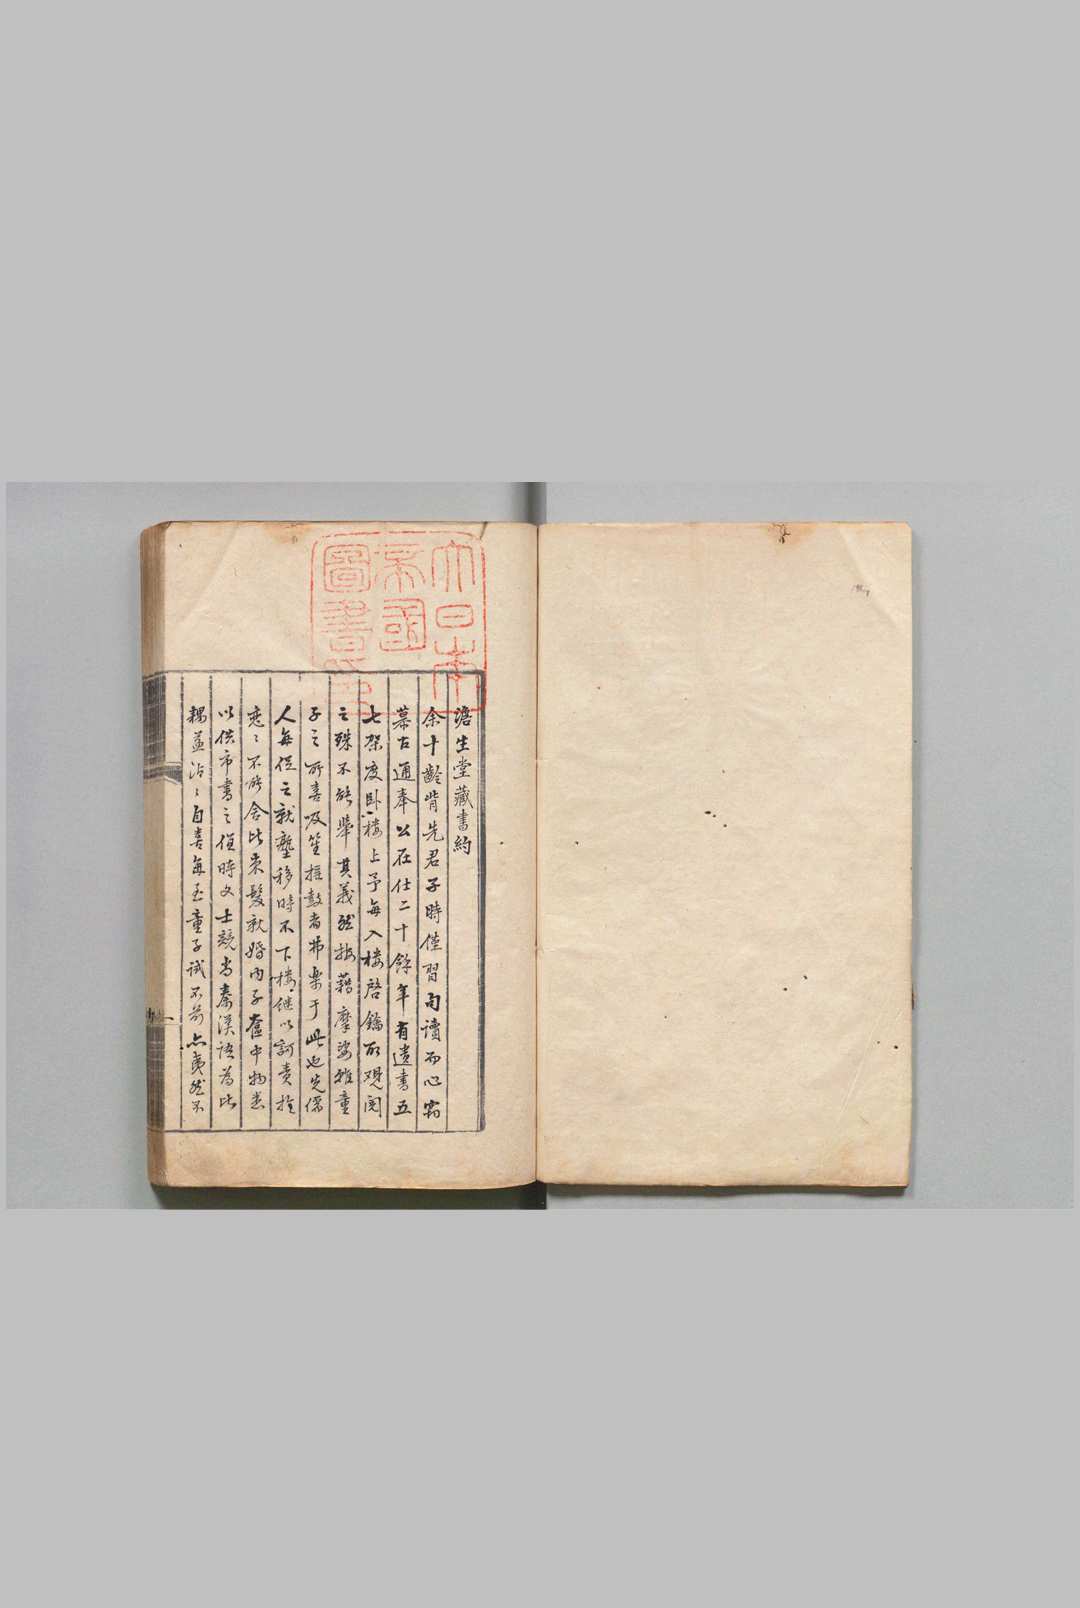 大日本
帝國
圖書印
澹生堂藏書約
余十齡背先君子時僅習句讀而心竊
慕古通奉公在仕二十餘年有遺書五
七架庋臥樓上予每入樓啓鑰取觀閱
之殊不能舉其義然按藉摩娑雖童
子之所喜吸笙搖鼓者弗樂于此也先孺
人每促之就塾移時不下樓繼以訶責終
戀〻不能舍比束髮就婚內子奩中物悉
以供市書之值時文士競尚秦漢語為比
耦益沾〻自喜每至童子試不前亦夷然不